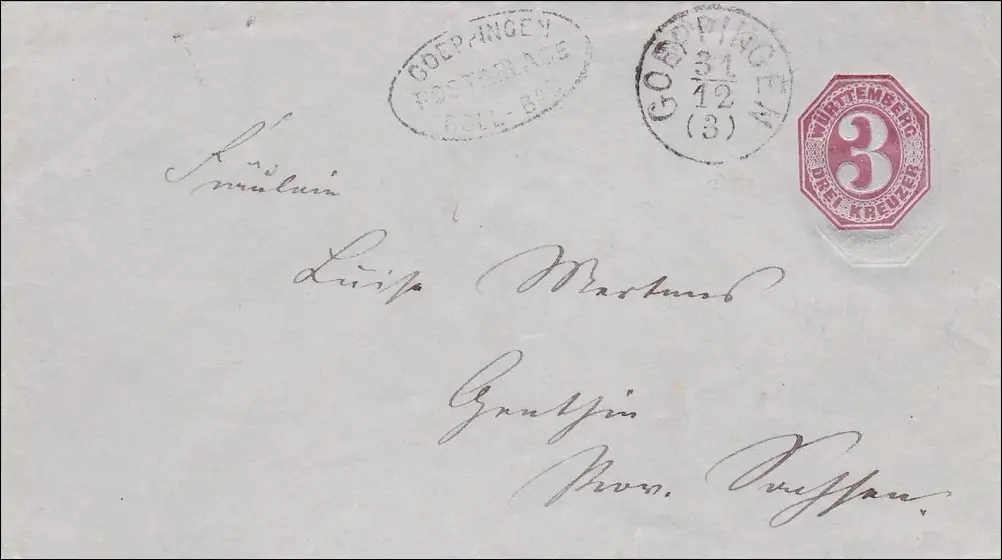 GOEPPINGEN
POSTABLAGE
BOLL-BAD
GOEPPINGEN
31
12
(3)
WÜRTTEMBERG
3
DREI KREUZER
Fräulein
Luise Mertens
Genthin
Prov. Sachsen.